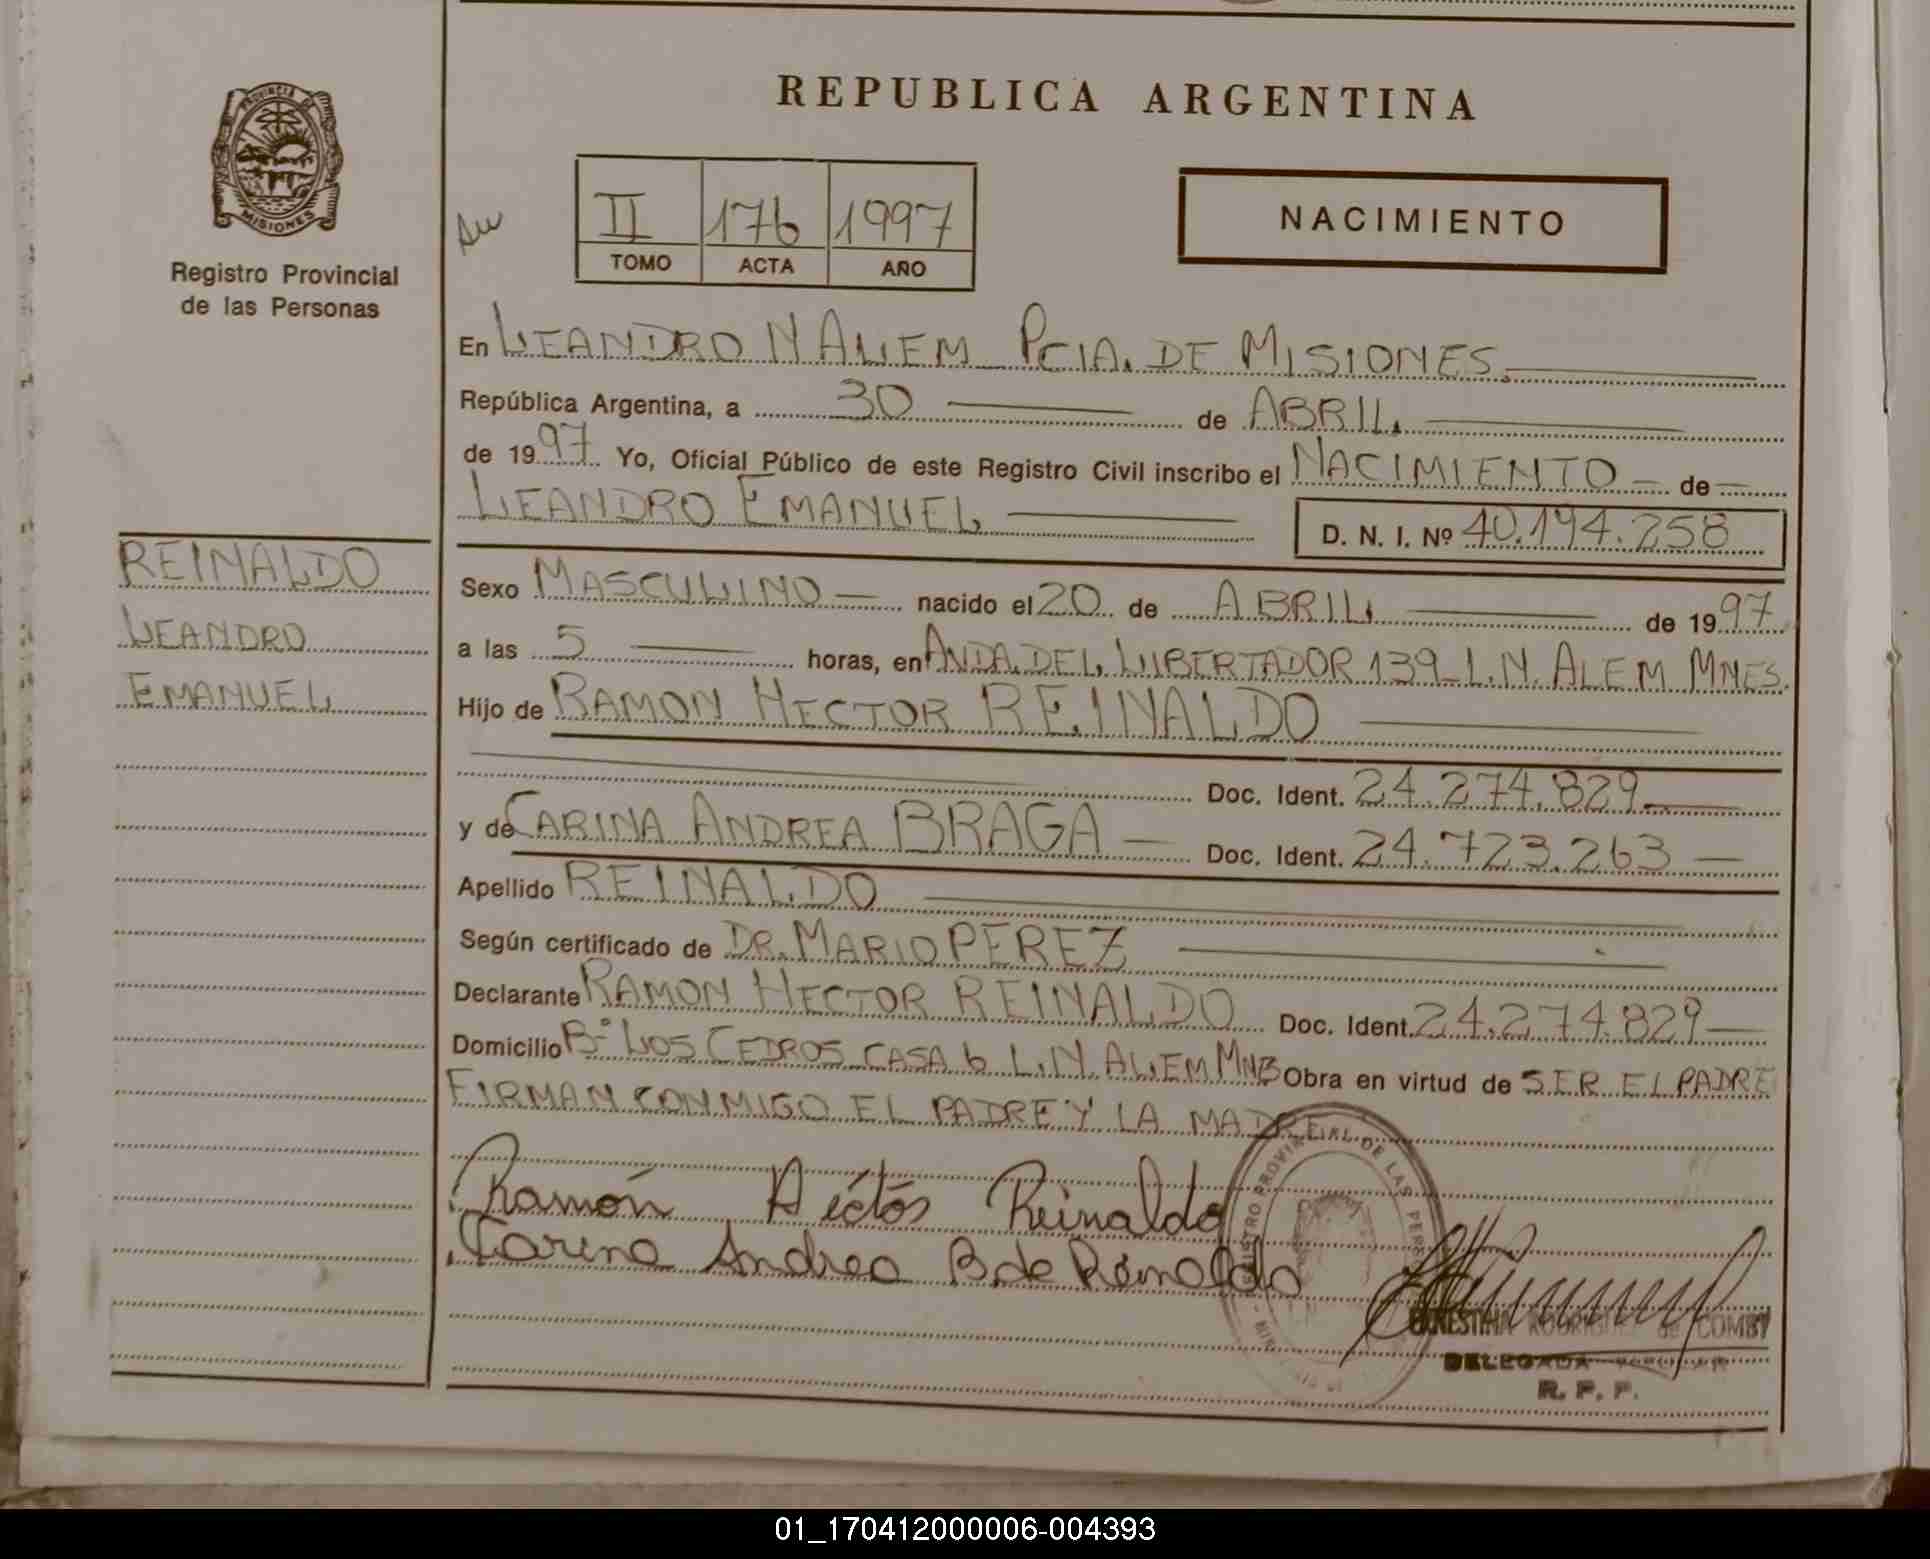 PROVINCIA DE
MISIONES
Registro Provincial
de las Personas
REINALDO
LEANDRO
EMANUEL
REPUBLICA ARGENTINA
II 176 1997
TOMO ACTA AÑO
NACIMIENTO
En LEANDRO N ALEM PCIA. DE MISIONES.
República Argentina, a 30 de ABRIL
de 1997. Yo, Oficial Público de este Registro Civil inscribo el NACIMIENTO de
LEANDRO EMANUEL D. N. I. Nº 40.194.258
Sexo MASCULINO nacido el 20 de ABRIL de 1997
a las 5 horas, en AVDA. DEL LIBERTADOR 139 L.N. ALEM MNES.
Hijo de RAMON HECTOR REINALDO
Doc. Ident. 24.274.829
y de CARINA ANDREA BRAGA Doc. Ident. 24.723.263
Apellido REINALDO
Según certificado de DR. MARIO PEREZ
Declarante RAMON HECTOR REINALDO Doc. Ident. 24.274.829
Domicilio Bº LOS CEDROS CASA 6 L.N. ALEM MNES Obra en virtud de SER EL PADRE
FIRMAN CONMIGO EL PADRE Y LA MADRE
Ramón Héctor Reinaldo
Carina Andrea B. de Reinaldo
RODRIGUEZ de COMBY
DELEGADA TITULAR
R. P. P.
01_170412000006-004393